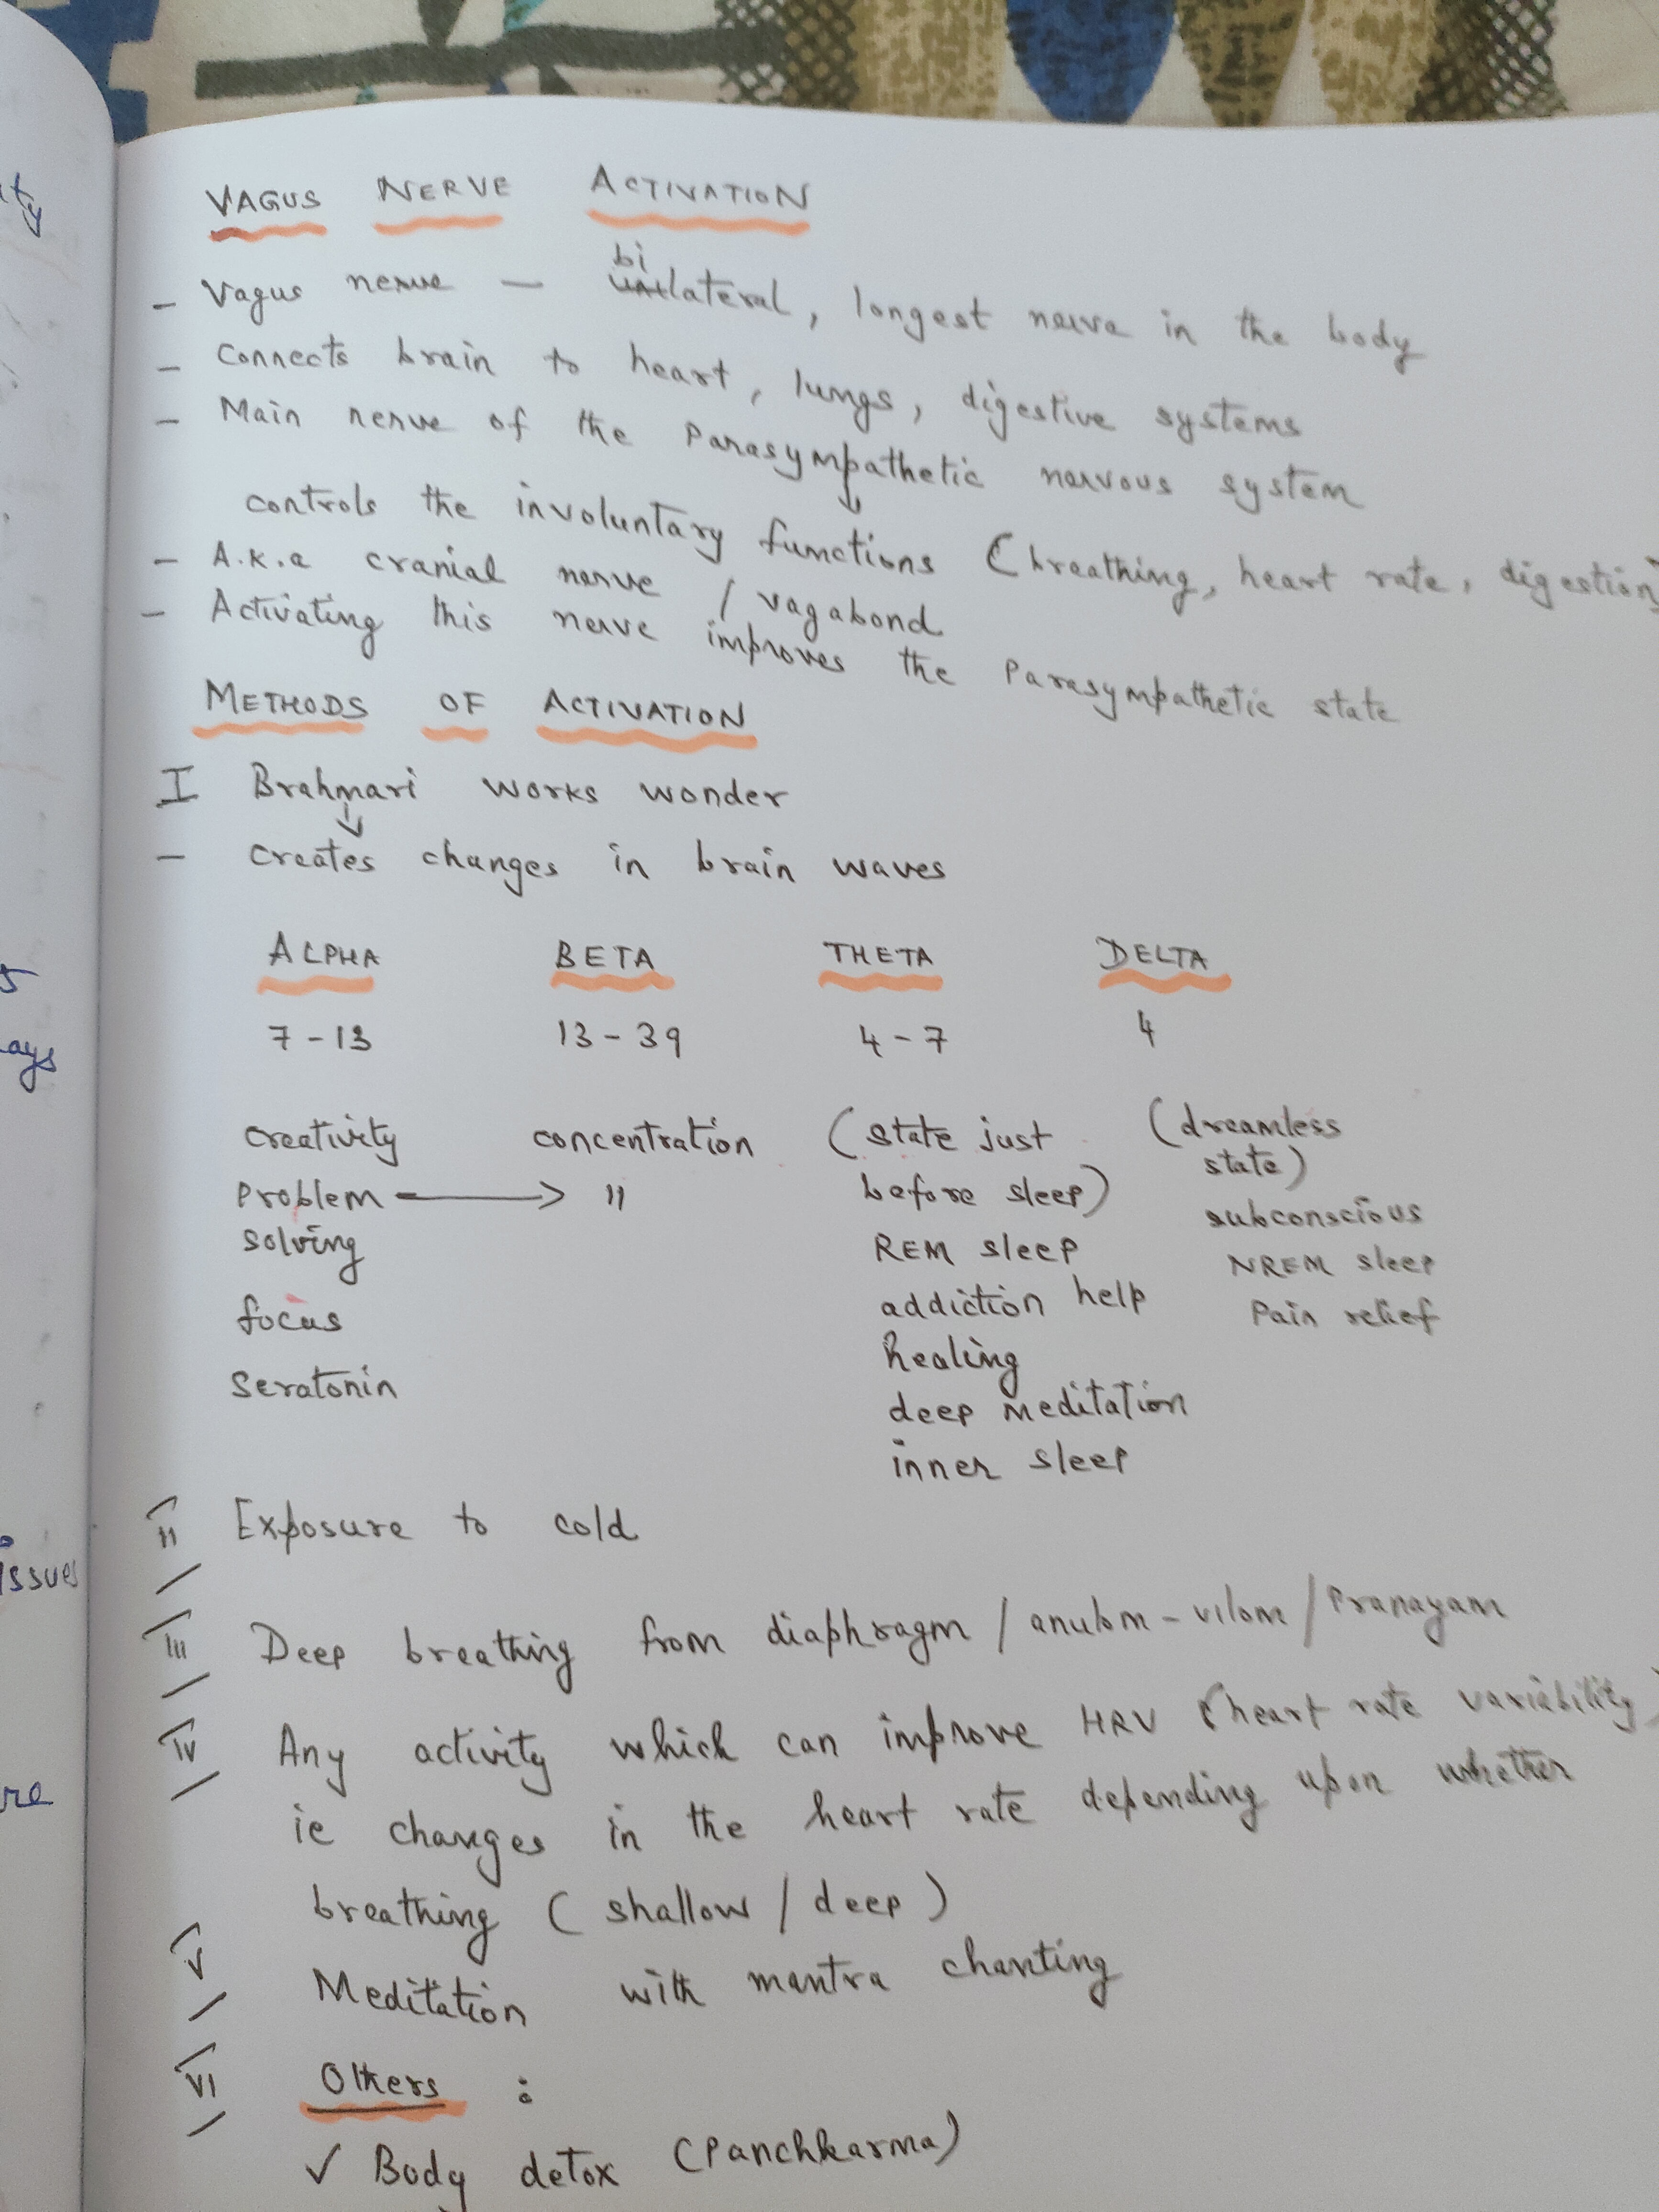 VAGUS NERVE ACTIVATION
- Vagus nerve — bilateral, longest nerve in the body
- Connects brain to heart, lungs, digestive systems
- Main nerve of the Parasympathetic nervous system
↓
controls the involuntary functions (breathing, heart rate, digestion)
- A.K.a cranial nerve / vagabond
- Activating this nerve improves the Parasympathetic state
METHODS OF ACTIVATION
I Brahmari works wonder
↓
- Creates changes in brain waves
ALPHA BETA THETA DELTA
7-13 13-39 4-7 4
creativity concentration (state just (dreamless
state)
Problem → " before sleep)
subconscious
solving REM sleep NREM sleep
focus addiction help Pain relief
healing
seratonin
deep meditation
inner sleep
II Exposure to cold
III Deep breathing from diaphragm / anulom-vilom / Pranayam
IV Any activity which can improve HRV (heart rate variability)
ie changes in the heart rate depending upon whether
breathing (shallow / deep)
V Meditation with mantra chanting
VI Others :
✓ Body detox (Panchkarma)
ty
5
ays
issues
re